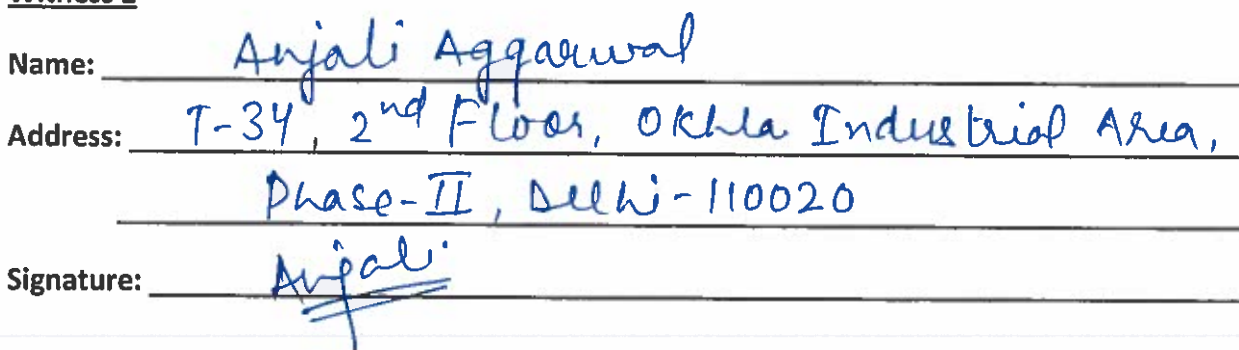 Witness 2
Name: Anjali Aggarwal
Address: T-34, 2nd Floor, Okhla Industrial Area,
Phase-II, Delhi-110020
Signature: Anjali